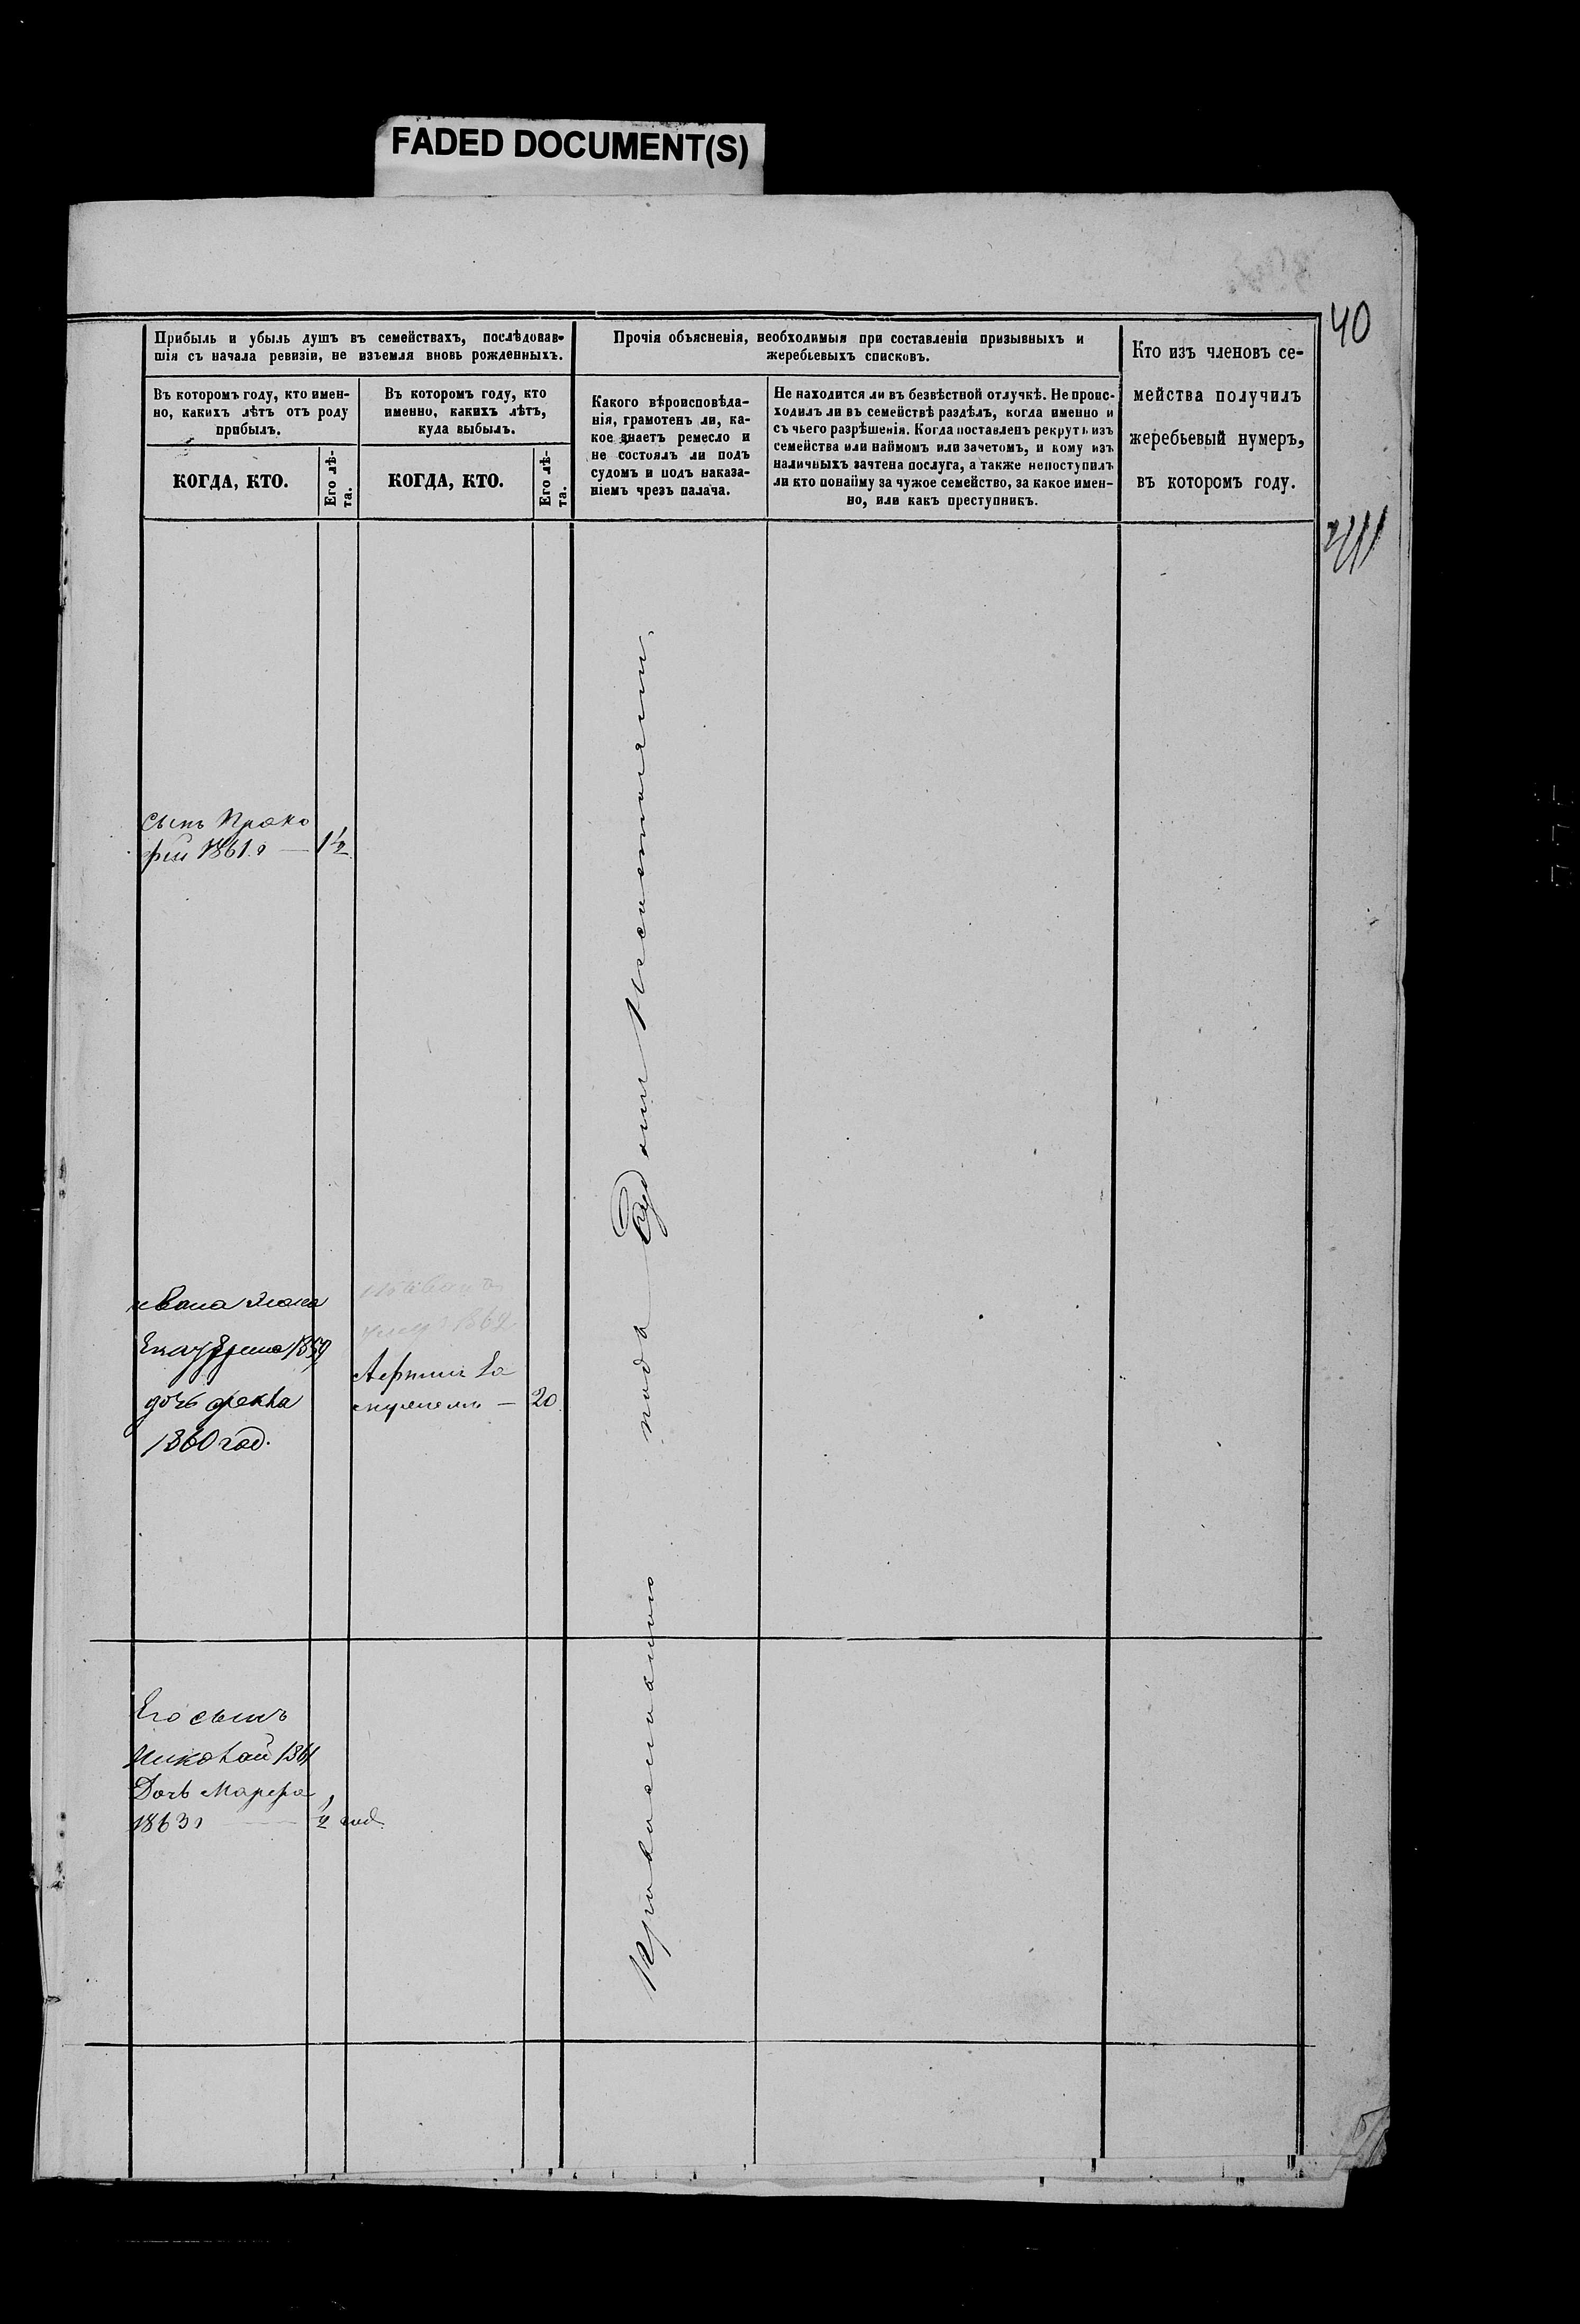 FADED DOCUMENT(S)
40
Прибыль и убыль душъ въ семействахъ, послѣдовав-
шія съ начала ревизіи, не взъемля вновь рожденныхъ.
Въ которомъ году, кто имен-
но, какихъ лѣтъ отъ роду
прибылъ.
КОГДА, КТО.
Его лѣ-
та.
Въ которомъ году, кто
именно, какихъ лѣтъ,
куда выбылъ.
КОГДА, КТО.
Его лѣ-
та.
Прочія объясненія, необходимыя при составленіи призывныхъ и
жеребьевыхъ списковъ.
Какого вѣроисповѣда-
нія, грамотенъ ли, ка-
кое знаетъ ремесло и
не состоялъ ли подъ
судомъ и подъ наказа-
ніемъ чрезъ палача.
Не находится ли въ безвѣстной отлучкѣ. Не проис-
ходилъ ли въ семействѣ раздѣлъ, когда именно и
съ чьего разрѣшенія. Когда поставленъ рекрутъ изъ
семейства или наймомъ или зачетомъ, и кому изъ
наличныхъ зачтена послуга, а также непоступилъ
ли кто понайму за чужое семейство, за какое имен-
но, или какъ преступникъ.
Кто изъ членовъ се-
мейства получилъ
жеребьевый нумеръ,
въ которомъ году.
сынъ Проко
фій 1861 г — 1½
Ивана жена
Екатерина 1859
дочь Фекла
1860 год.
1862
20
Его сынъ
Николай 1861
Дочь Марфа
1863 г — ½ год.
Православнаго подъ Судомъ Несостоялъ.